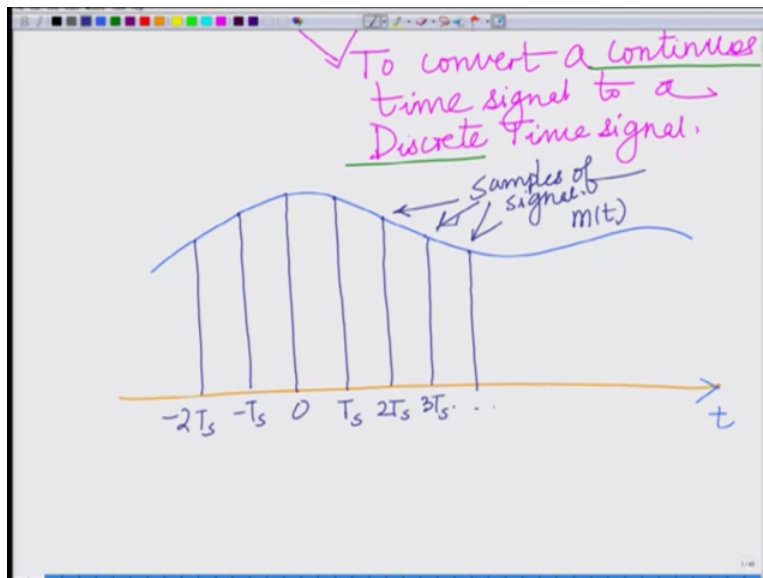 To convert a continuos
time signal to a
Discrete Time signal.
Samples of
signal.
m(t)
-2Ts -Ts 0 Ts 2Ts 3Ts. . .
t